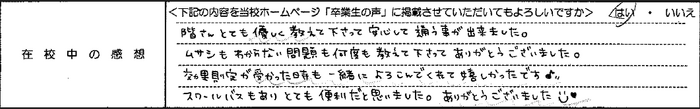 <下記の内容を当校ホームページ「卒業生の声」に掲載させていただいてもよろしいですか> はい ・ いいえ
在校中の感想
皆さんとても優しく教えて下さって安心して通う事が出来ました。
ムサシもわからない問題も何度も教えて下さってありがとうございました。
効果測定が受かった時も一緒によろこんでくれて嬉しかったです♪。
スクールバスもありとても便利だと思いました。ありがとうございました